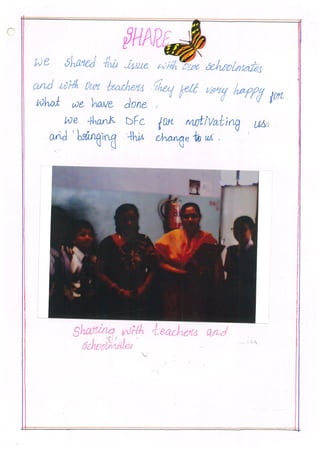 SHARE
We shared this issue with our schoolmates
and with our teachers. They felt very happy for
what we have done.
We thank DFC for motivating us
and bringing this change to us.
Sharing with teachers and
schoolmates